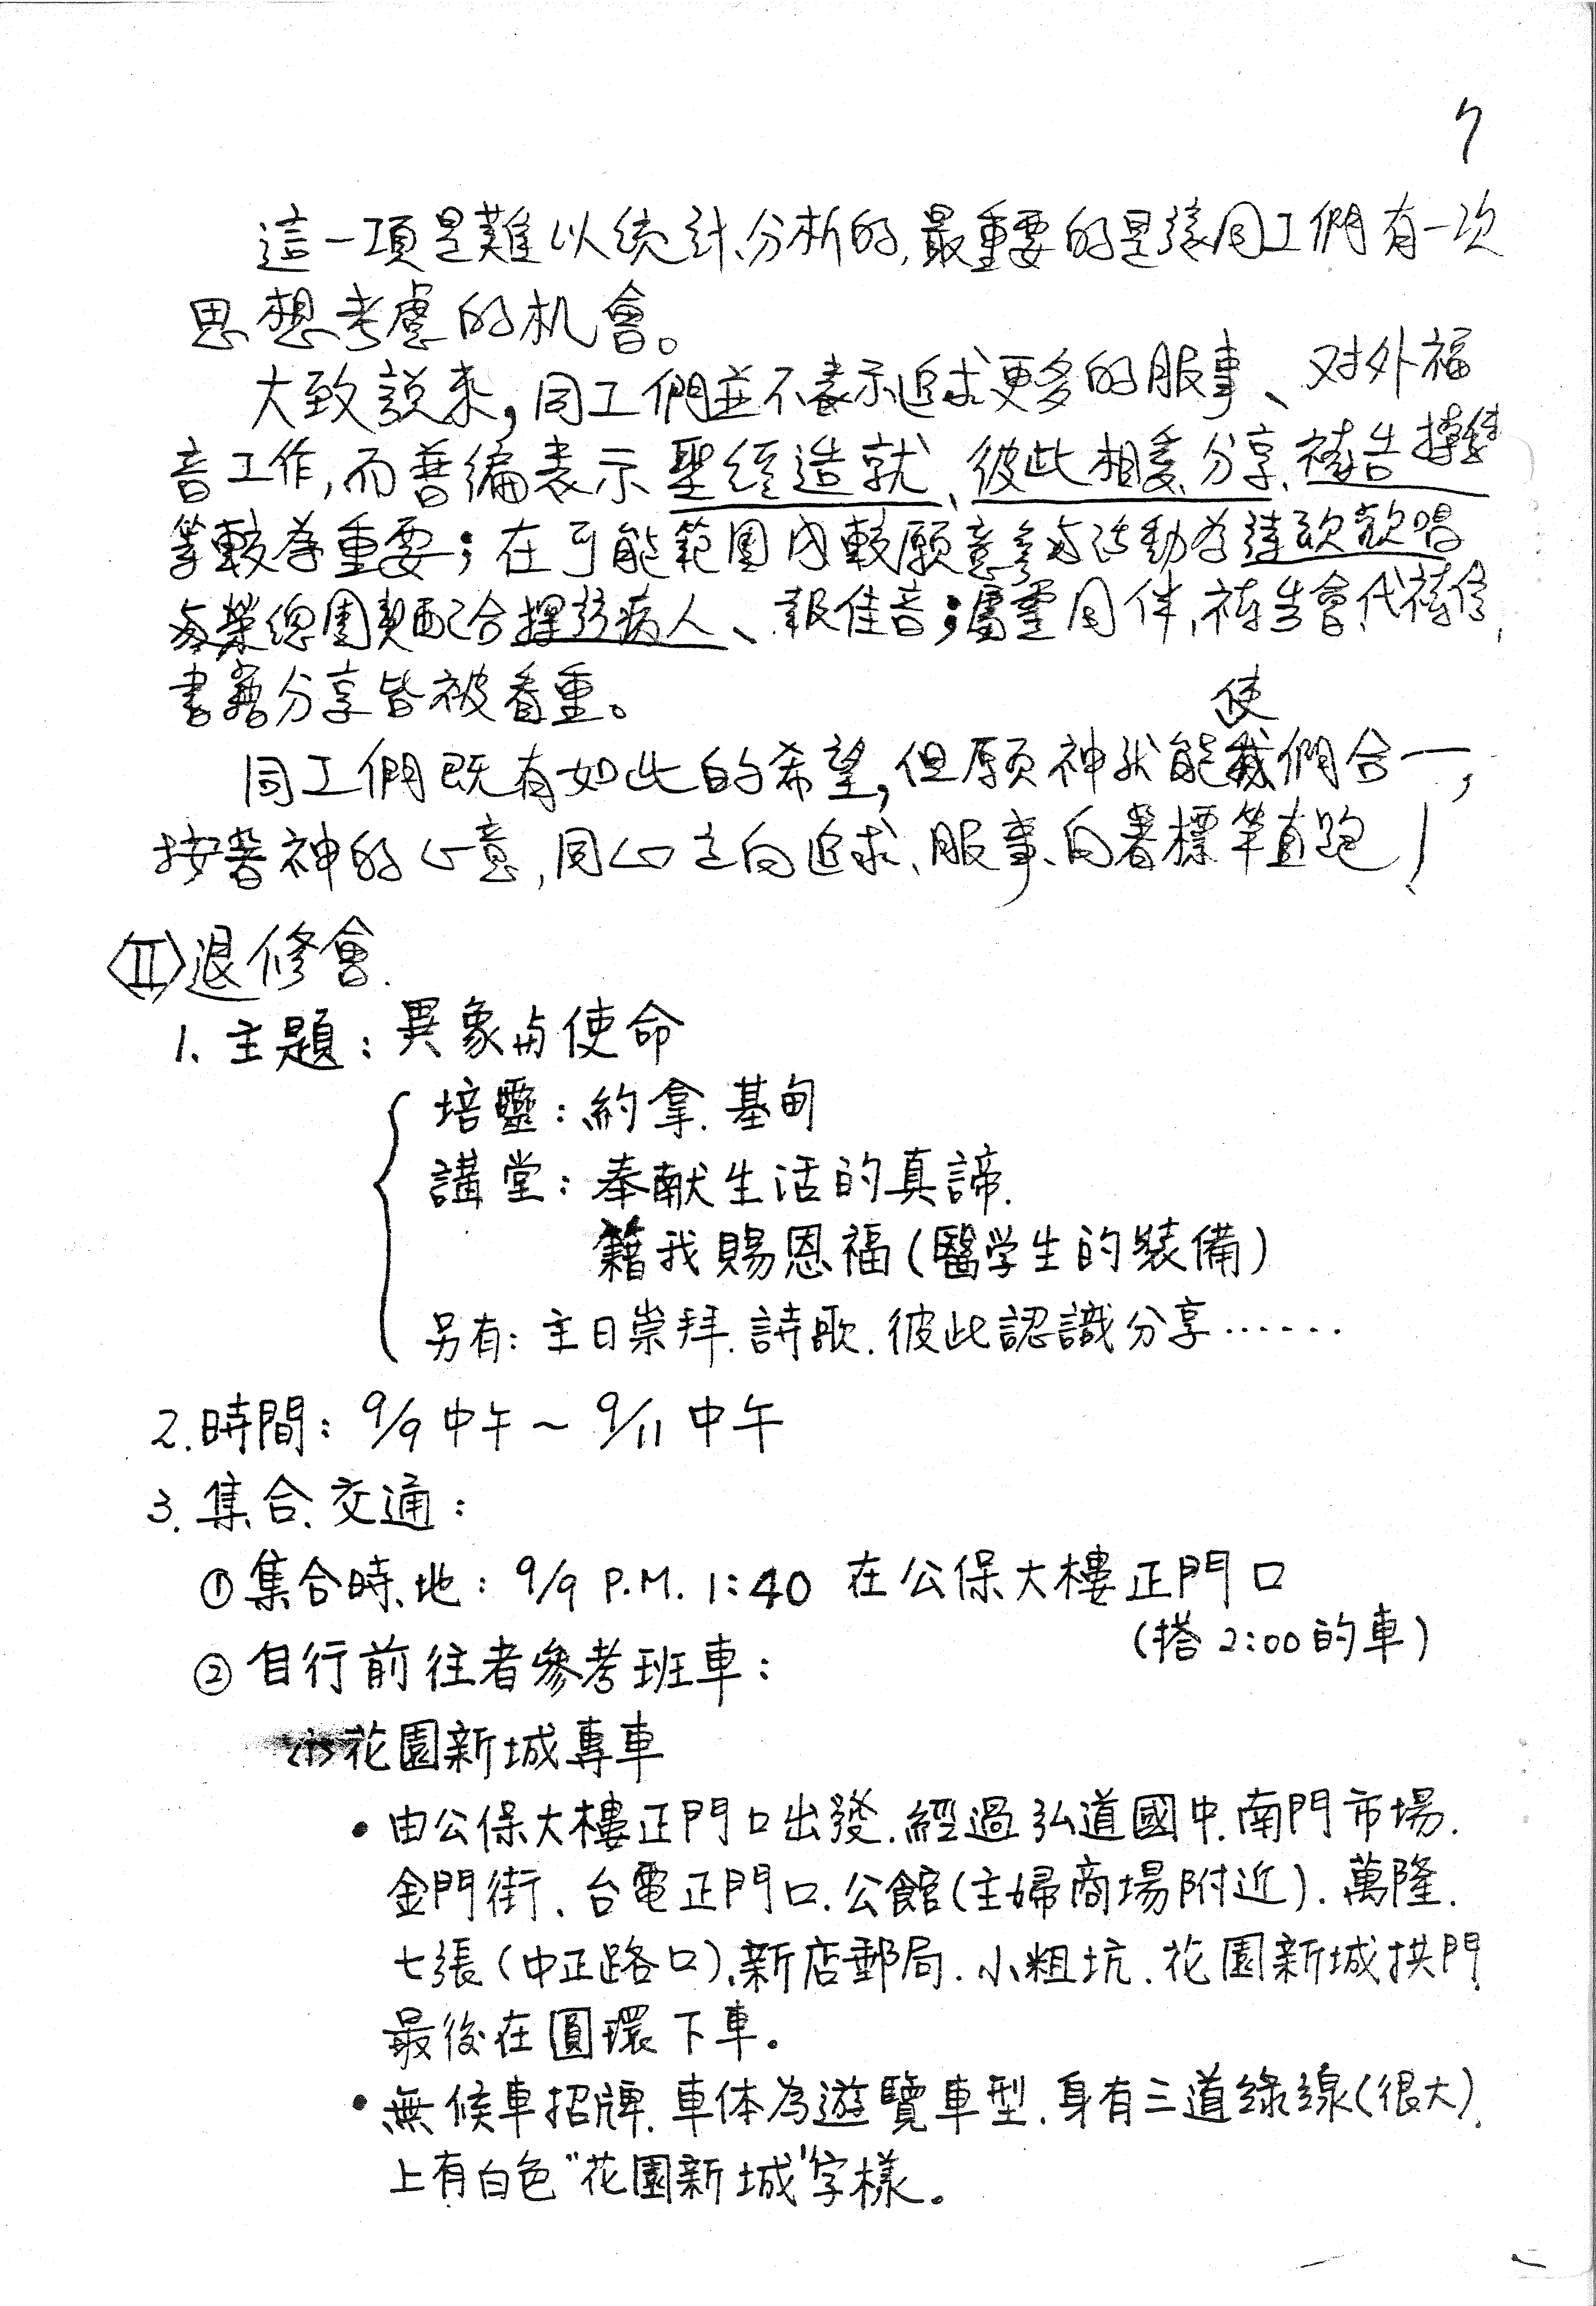 7
這一項是難以統計、分析的,最重要的是讓同工們有一次
思想考慮的机會。
大致說來,同工們並不表示追求更多的服事、对外福
音工作,而普編表示聖經造就、彼此相愛、分享、禱告操練
等較為重要;在可能範圍內較願意參与活動为詩歌歡唱
与榮總團契配合探訪病人、報佳音;屬靈同伴,禱告會、代禱信,
書籍分享皆被看重。
同工們既有如此的希望,但願神就能使們合一,
按著神的心意,同心之向追求、服事、向著標竿直跑!
〈II〉退修會.
1. 主題:異象与使命
培靈:約拿.基甸
講堂:奉献生活的真諦.
籍我賜恩福(醫学生的裝備)
另有:主日崇拜.詩歌.彼此認識分享……
2. 時間:9/9 中午~9/11 中午
3. 集合.交通:
① 集合時、地:9/9 P.M. 1:40 在公保大樓正門口
(搭 2:00 的車)
② 自行前往者參考班車:
(1) 花園新城專車
• 由公保大樓正門口出發.經過弘道國中.南門市場.
金門街、台電正門口.公館(主婦商場附近).萬隆.
七張(中正路口).新店郵局.小粗坑.花園新城拱門
最後在圓環下車。
• 無候車招牌.車体為遊覽車型.身有三道綠線(很大).
上有白色"花園新城"字樣。